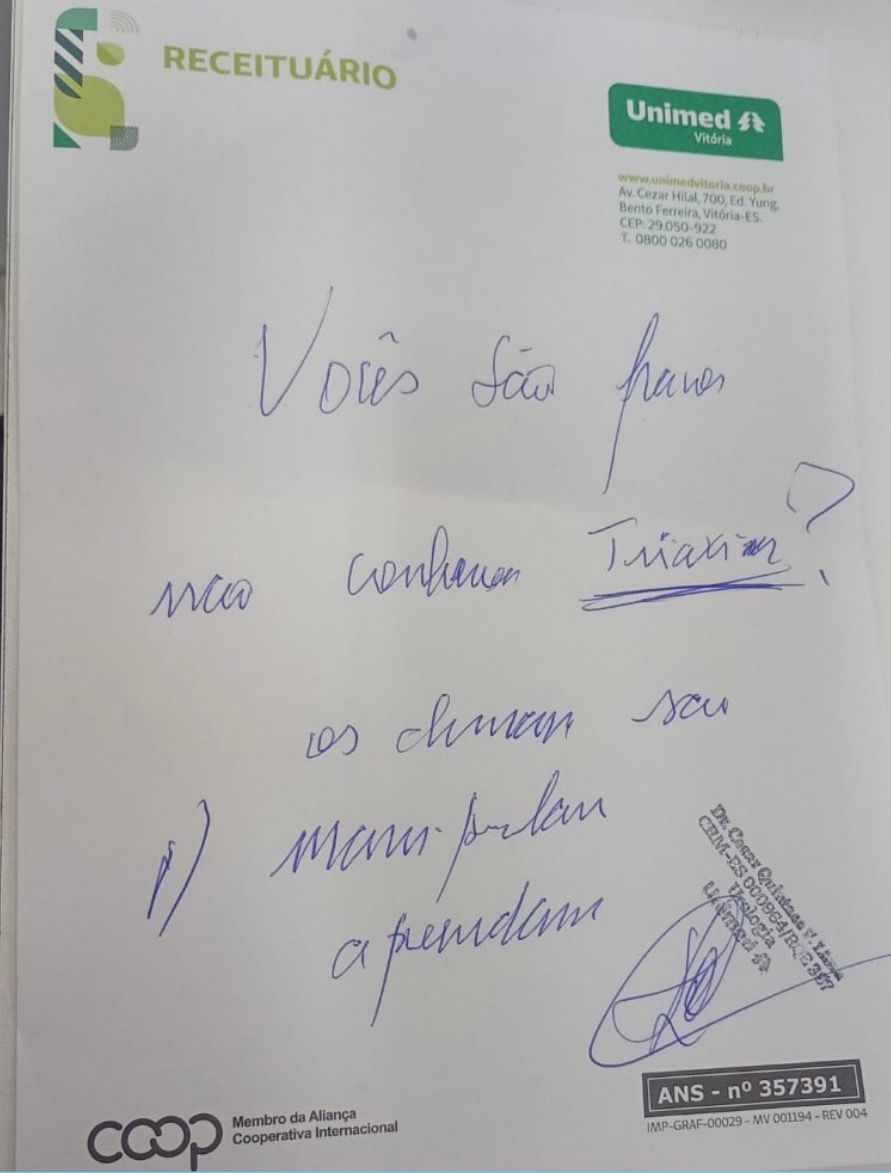 RECEITUÁRIO
Unimed
Vitória
www.unimedvitoria.coop.br
Av. Cezar Hilal, 700, Ed. Yung,
Bento Ferreira, Vitória-ES.
CEP: 29.050-922
T. 0800 026 0080
Vocês são
não conhecem Triaxin?
os demais são
p/ manipular
aprendam
CRM-ES 000964/RQE 387
Urologia
Unimed
ANS - nº 357391
IMP-GRAF-00029 - MV 001194 - REV 004
COOP
Membro da Aliança
Cooperativa Internacional